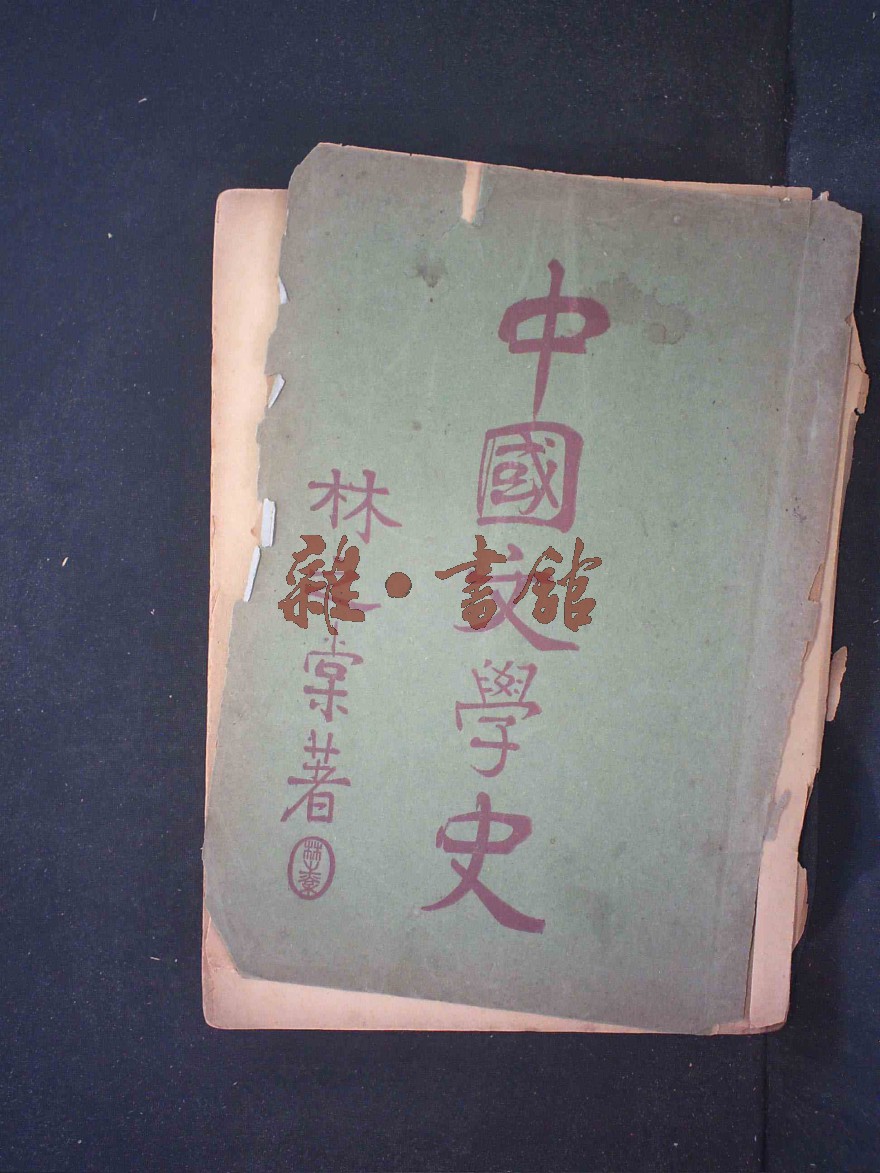 中國文學史
林之棠著
雜·書館